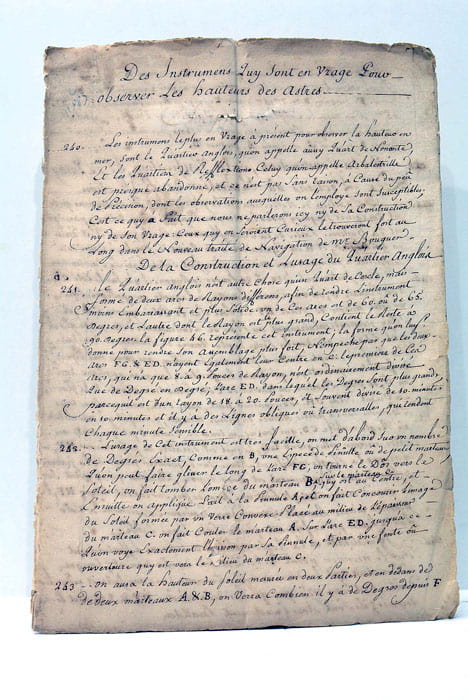 Des Instrumens Quy Sont en Vzage Pour
observer Les hauteurs des Astres
240. Les instrumens le plus en Vzage a present pour observer la hauteur en
mer, sont le Quartier Anglois, qu'on appelle aussy Quart de Nonante
Et les Quartiers de Reflections Celuy qu'on appelle Arbalestrille
est presque abandonné, et ce n'est pas Sans raison, a Cause du peu
de Precision, dont les observations auxquelles on L'employe sont Susceptibles,
C'est ce quy a fait que nous ne parlerons icy ny de Sa Construction
ny de son Vzage. Ceux quy en Seroient Curieux le trouveront fort au
Long dans le Nouveau traité de Navigation de mr. Bouguer
De la Construction et Lusage du Quartier Anglois
241. Le Quartier Anglois n'est autre Chose qu'un Quart de Cercle, mais
formé de deux arcs de Rayons differens, afin de rendre Linstrument
moins Embarassant et plus Solide. un de Ces Arcs est de 60. où de 65.
Degrez, et Lautre dont le Rayon est plus grand, Contient le Reste a
90. Degrez. la figure 46. represente cet instrument; la forme qu'on luy
donne pour rendre Son Assemblage plus fort, N'empeche pas que les deux
Arcs FG. & ED. n'ayent Egalement leur Centre en C. le premier de Ces
Arcs, qui n'a que 8. à 9. Pouces de Rayon, n'est ordinairement divisé
que de Degré en Degré, L'arc ED. dans lequel les Degrez Sont plus grands,
parcequil est d'un rayon de 18. a 20. Pouces, est Souvent divisé de 10. minutes
en 10 minutes et il y a des Lignes obliques où transversalles, qui rendent
Chaque minute Sensible.
242. Lusage de Cet instrument est tres facille, on met d'abord sur un nombre
de Degrés Exact, Comme en B, une Espece de Pinulle ou de petit marteau
Quon peut faire glisser le long de Larc FG, on tourne le Dos vers le
Soleil, on fait tomber L'ombre du marteau B, sur le marteau C. quy est au Centre, et
Ensuitte on applique L'œil à la Pinnule A, et on fait Concourir Limage
du Soleil formée par un Verre Convexe Placé au milieu de L'Epaisseur
du marteau C. on fait Couler le marteau A. Sur Larc ED. jusqua ce
Quon voye Exactement Lhorizon par sa Pinnule, et par une fente où
ouverture quy est vers le milieu du marteau C.
243. on aura la hauteur du Soleil mesurée en deux Parties, et en dedans de
de deux marteaux A & B, on Verra Combien il y a de Degrés depuis F